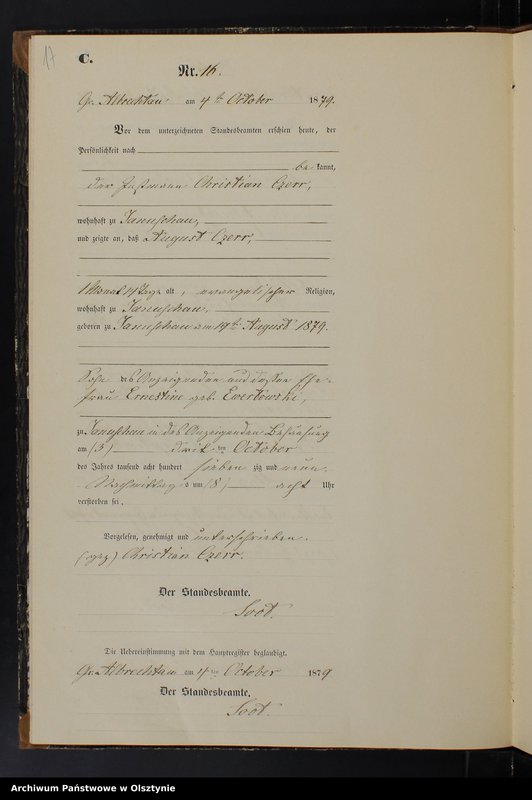 17
C.
Nr. 16.
Gr. Albrechtau am 4ten October 1879.
Vor dem unterzeichneten Standesbeamten erschien heute, der
Persönlichkeit nach
be kannt,
der Christian Czerr,
wohnhaft zu Januschau,
und zeigte an, daß August Czerr,
1 Monat 14 Tage alt, evangelischer Religion,
wohnhaft zu Januschau,
geboren zu Januschau am 19ten August 1879.
Sohn des Anzeigenden und dessen Ehe-
frau Ernestine geb. Ewertowski,
zu Januschau in des Anzeigenden Behausung
am (3) dritten October
des Jahres tausend acht hundert sieben zig und neun
Nachmittags um (8) acht Uhr
verstorben sei.
Vorgelesen, genehmigt und unterschrieben.
(gez) Christian Czerr.
Der Standesbeamte.
Die Uebereinstimmung mit dem Hauptregister beglaubigt.
Gr. Albrechtau am 4ten October 1879
Der Standesbeamte.
Archiwum Państwowe w Olsztynie